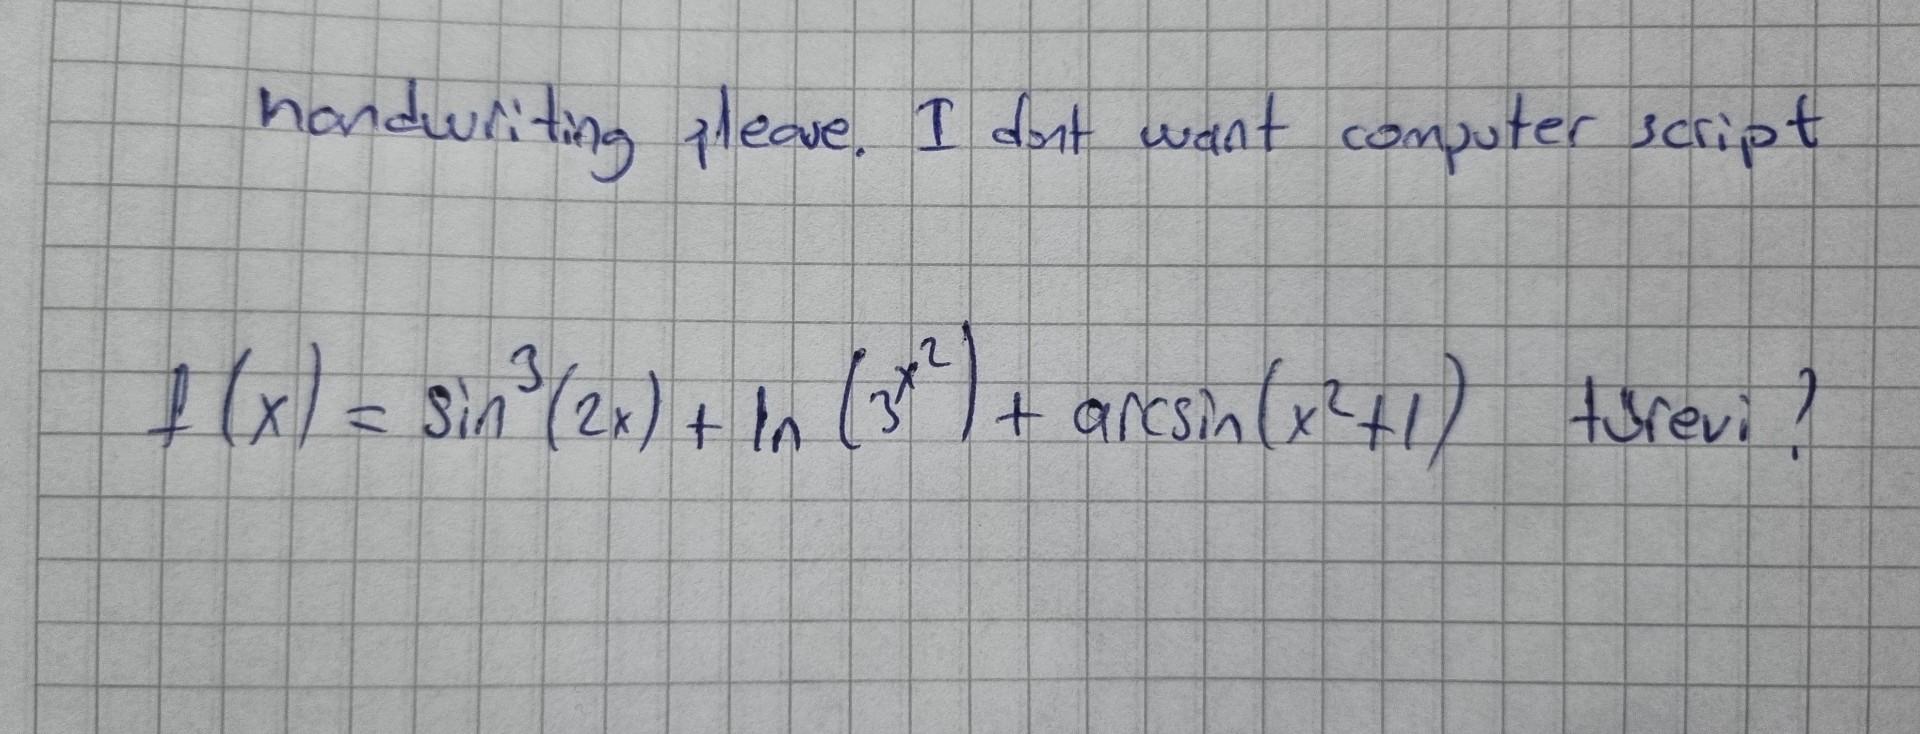 handwriting please. I dont want computer script
f(x) = sin³(2x) + ln(3^x²) + arcsin(x²+1) türevi ?